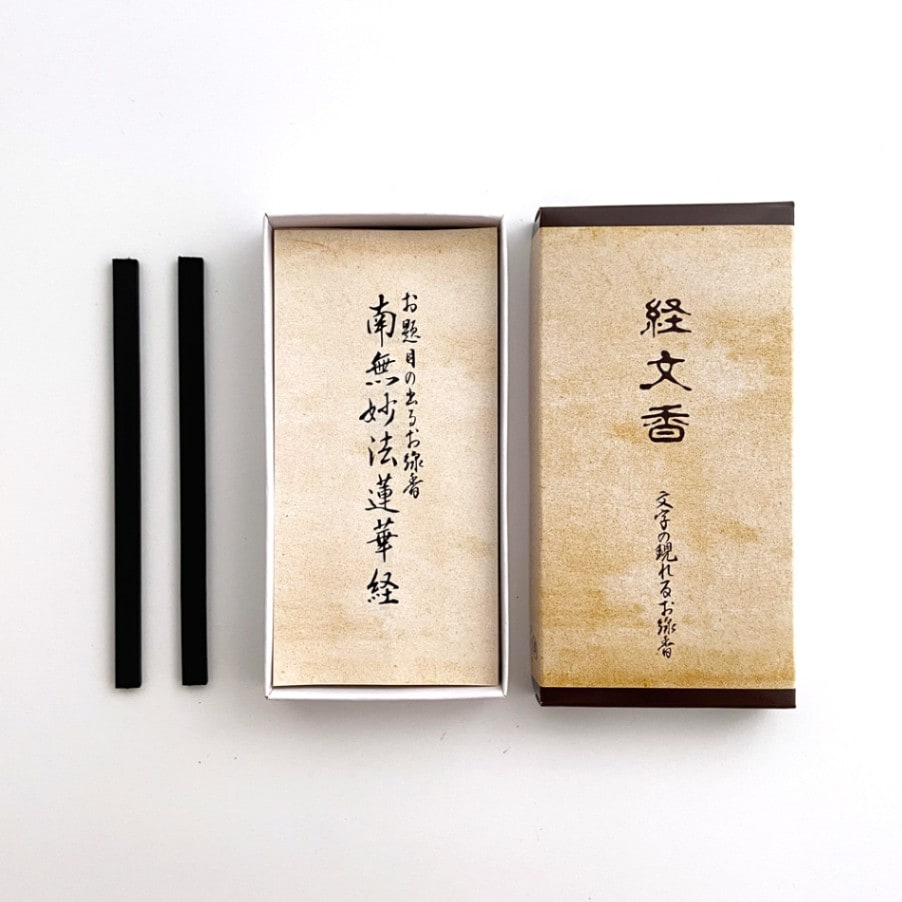 お題目の出るお線香
南無妙法蓮華経
経文香
文字の現れるお線香